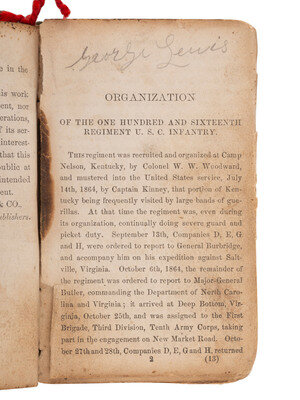 e in the
is work
nent, nor
erations,
f its ser-
interest-
that this
public at
intended
ent.
& CO.,
Publishers.
George Lewis
ORGANIZATION
OF THE ONE HUNDRED AND SIXTEENTH
REGIMENT U. S. C. INFANTRY.
THIS regiment was recruited and organized at Camp
Nelson, Kentucky, by Colonel W. W. Woodward,
and mustered into the United States service, July
14th, 1864, by Captain Kinney, that portion of Ken-
tucky being frequently visited by large bands of gue-
rillas. At that time the regiment was, even during
its organization, continually doing severe guard and
picket duty. September 13th, Companies D, E, G
and H, were ordered to report to General Burbridge,
and accompany him on his expedition against Salt-
ville, Virginia. October 6th, 1864, the remainder of
the regiment was ordered to Major-General
Butler, commanding the Department of North Caro-
lina and Virginia; it arrived at Deep Bottom, Vir-
ginia, October 25th, and was assigned to the First
Brigade, Third Division, Tenth Army Corps, taking
part in the engagement on New Market Road. Octo-
ber 27th and 28th, Companies D, E, G and H, returned
2 (13)